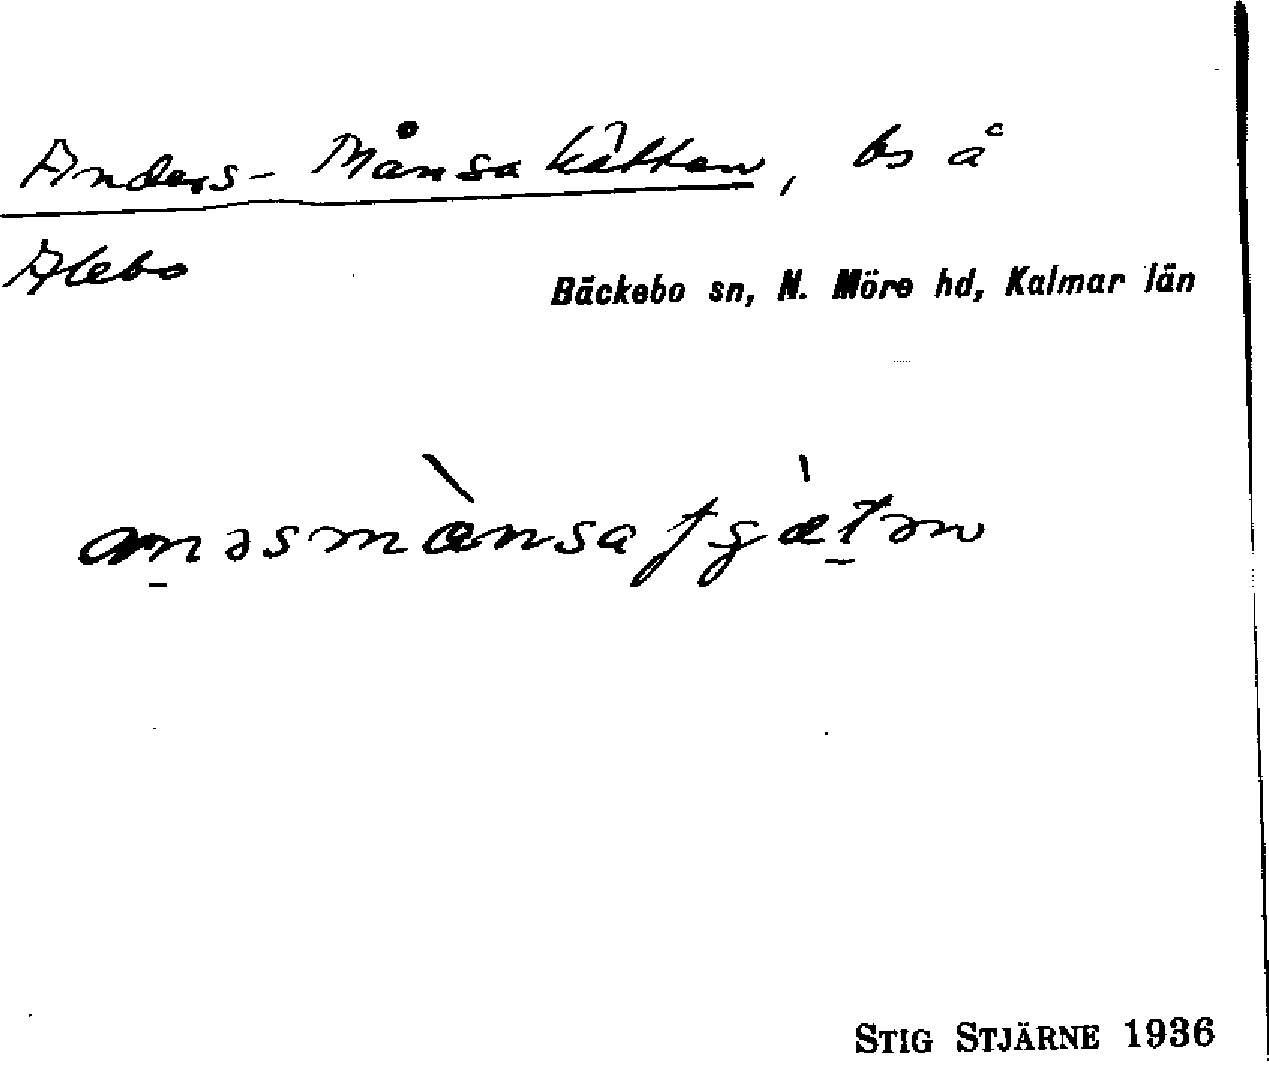 Anders-Månsa kätten, bs å
Alebo
Bäckebo sn, N. Möre hd, Kalmar län
STIG STJÄRNE 1936